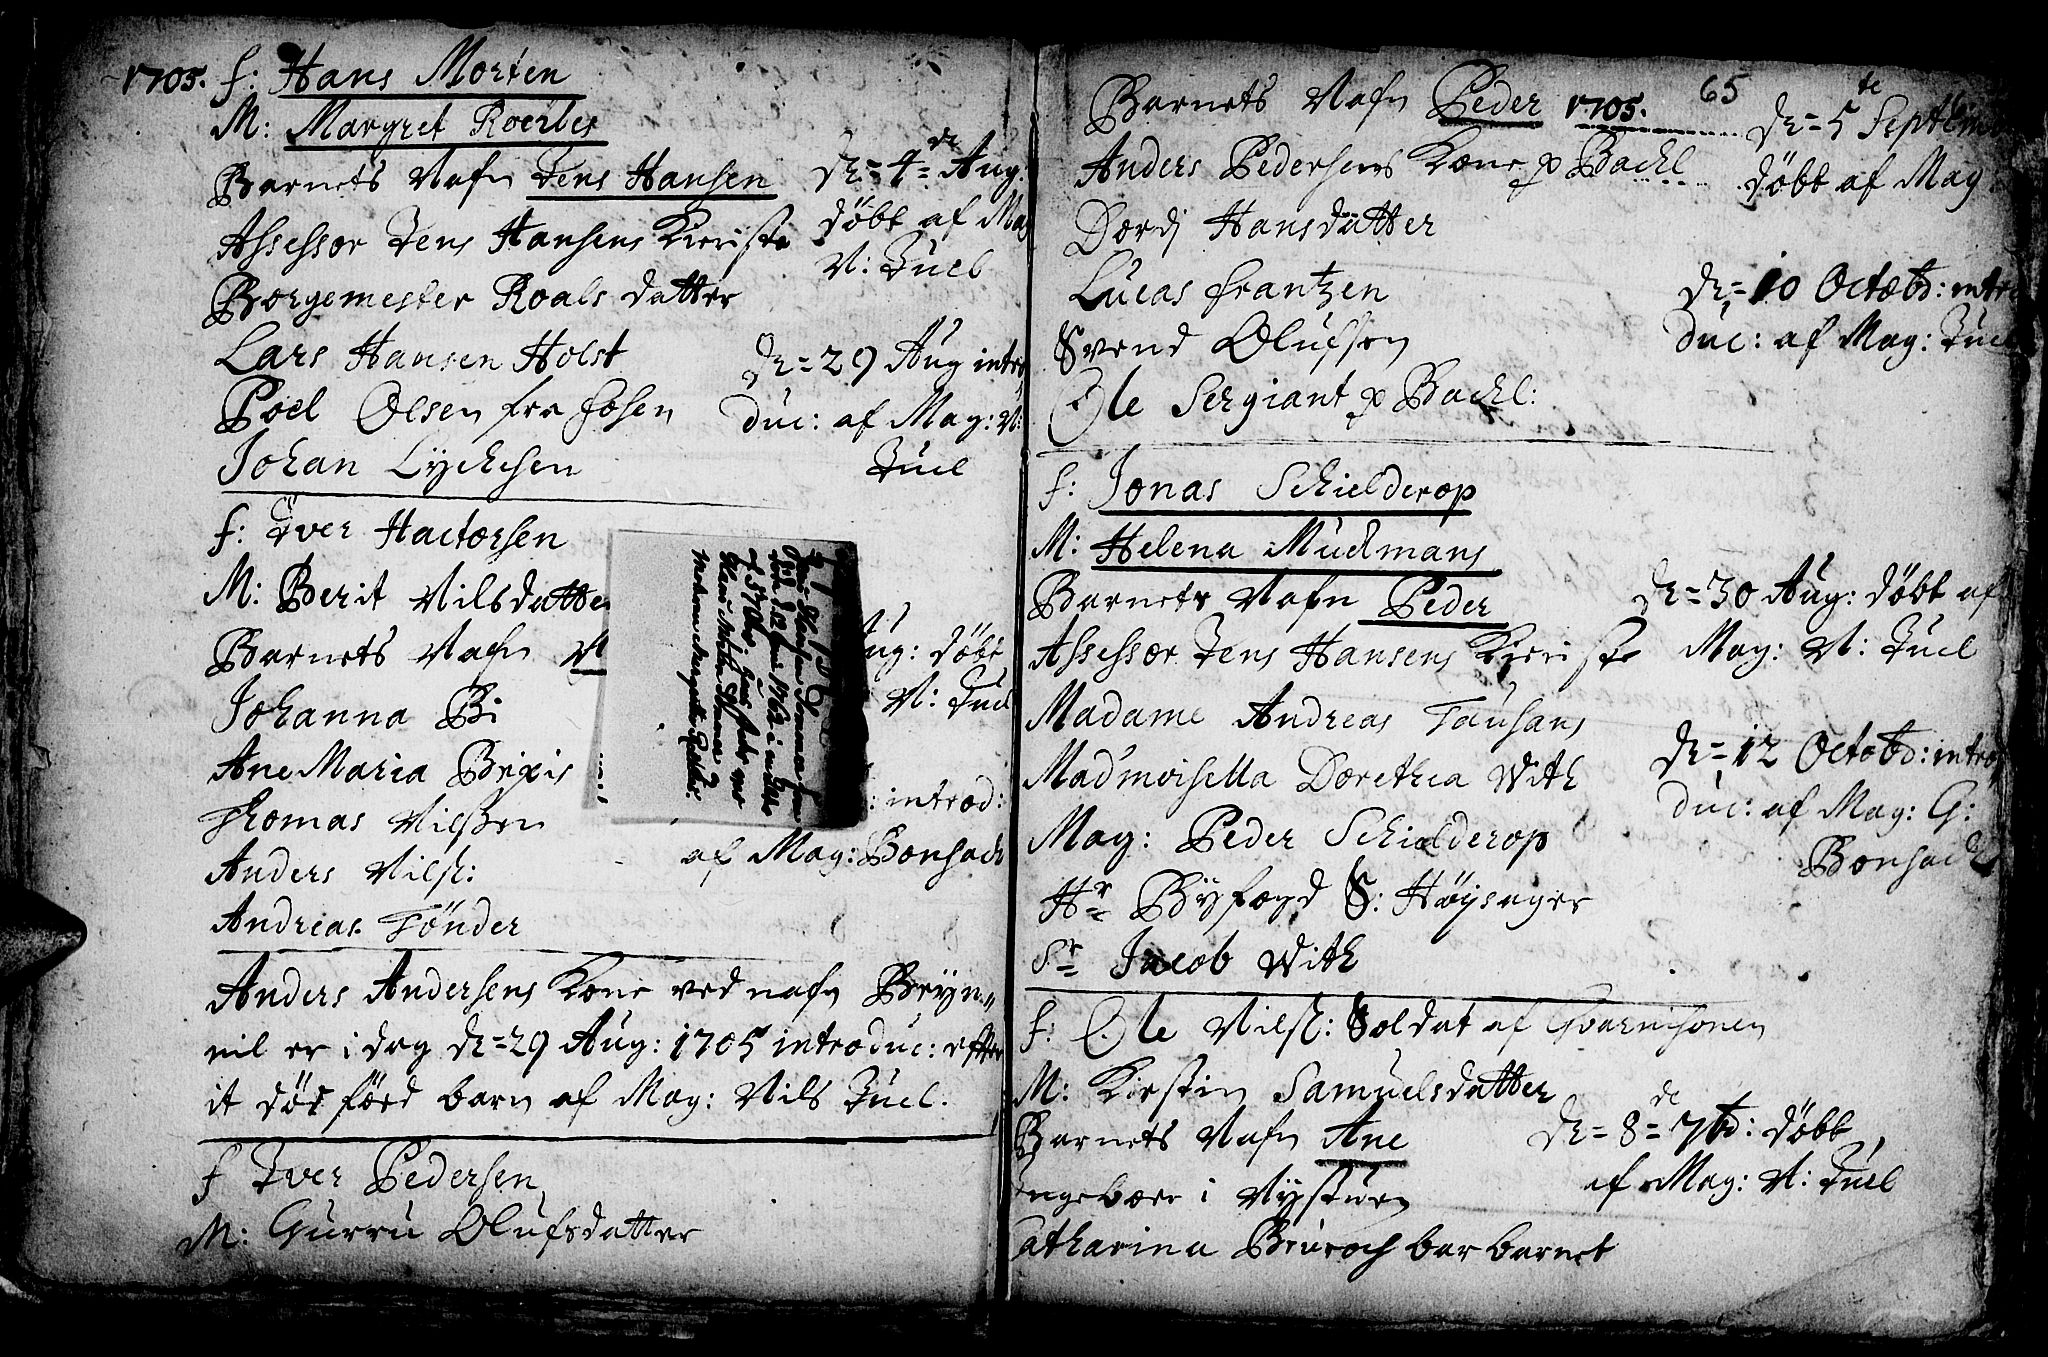 1705. f: Hans Morten
M: Margret Roerbes
Barnets Nafn Jens Hansen
Assessor Jens Hansens Kieriste
Borgemester Roals datter
Lars Hansen Holst
Poel Olsen fra fosen
Johan Lyckesen
dn=4=de Aug.
döbt af Mag
N: Juel
dn=29 Aug intro
duc: af Mag: N:
Juel
f: Iver Hactorsen
M: Berit Nilsdatter
Barnets Nafn
Johanna Bi
Ane Maria Brixis
Thomas Nilssen
Anders Nils:
Andreas Tönder
Aug: döbt
N: Juel
: introd:
af Mag: Bonsach
Anders Andersens Kone ved nafn Bryn=
nil er i dag dn=29 Aug: 1705 introduc: efter
it död föed barn af Mag: Nils Juel.
f Iver Pedersen
M: Gurru Olufsdatter
65
Barnets Nafn Peder 1705.
Anders Pedersens Kone p Backl
Dordj Hansdatter
Lucas frantzen
Svend Olufsen
Ole Sergiant p Backl:
dn=5te Septem
döbt af Mag
dn=10 Octobr: intro
duc: af Mag: Juel
f: Jonas Schielderop
M: Helena Mudmans
Barnets Nafn Peder
Assessor Jens Hansens Kieriste
Madame Andreas Tausans
Mad'moisella Dorethea With
Mag: Peder Schielderop
Hr= Byfogd S: Höysager
Sr= Jacob With
dn=30 Aug: döbt af
Mag: N: Juel
dn=12 Octobr: intro
duc: af Mag: G:
Bonsach
f: Ole Nils: Soldat af Gvarnisonen
M: Kirstin Samuelsdatter
Barnets Nafn Ane
Ingebaar i Nystuen
Catharina Bruroch bar barnet
dn=8=de 7br: döbt
af Mag: N: Juel